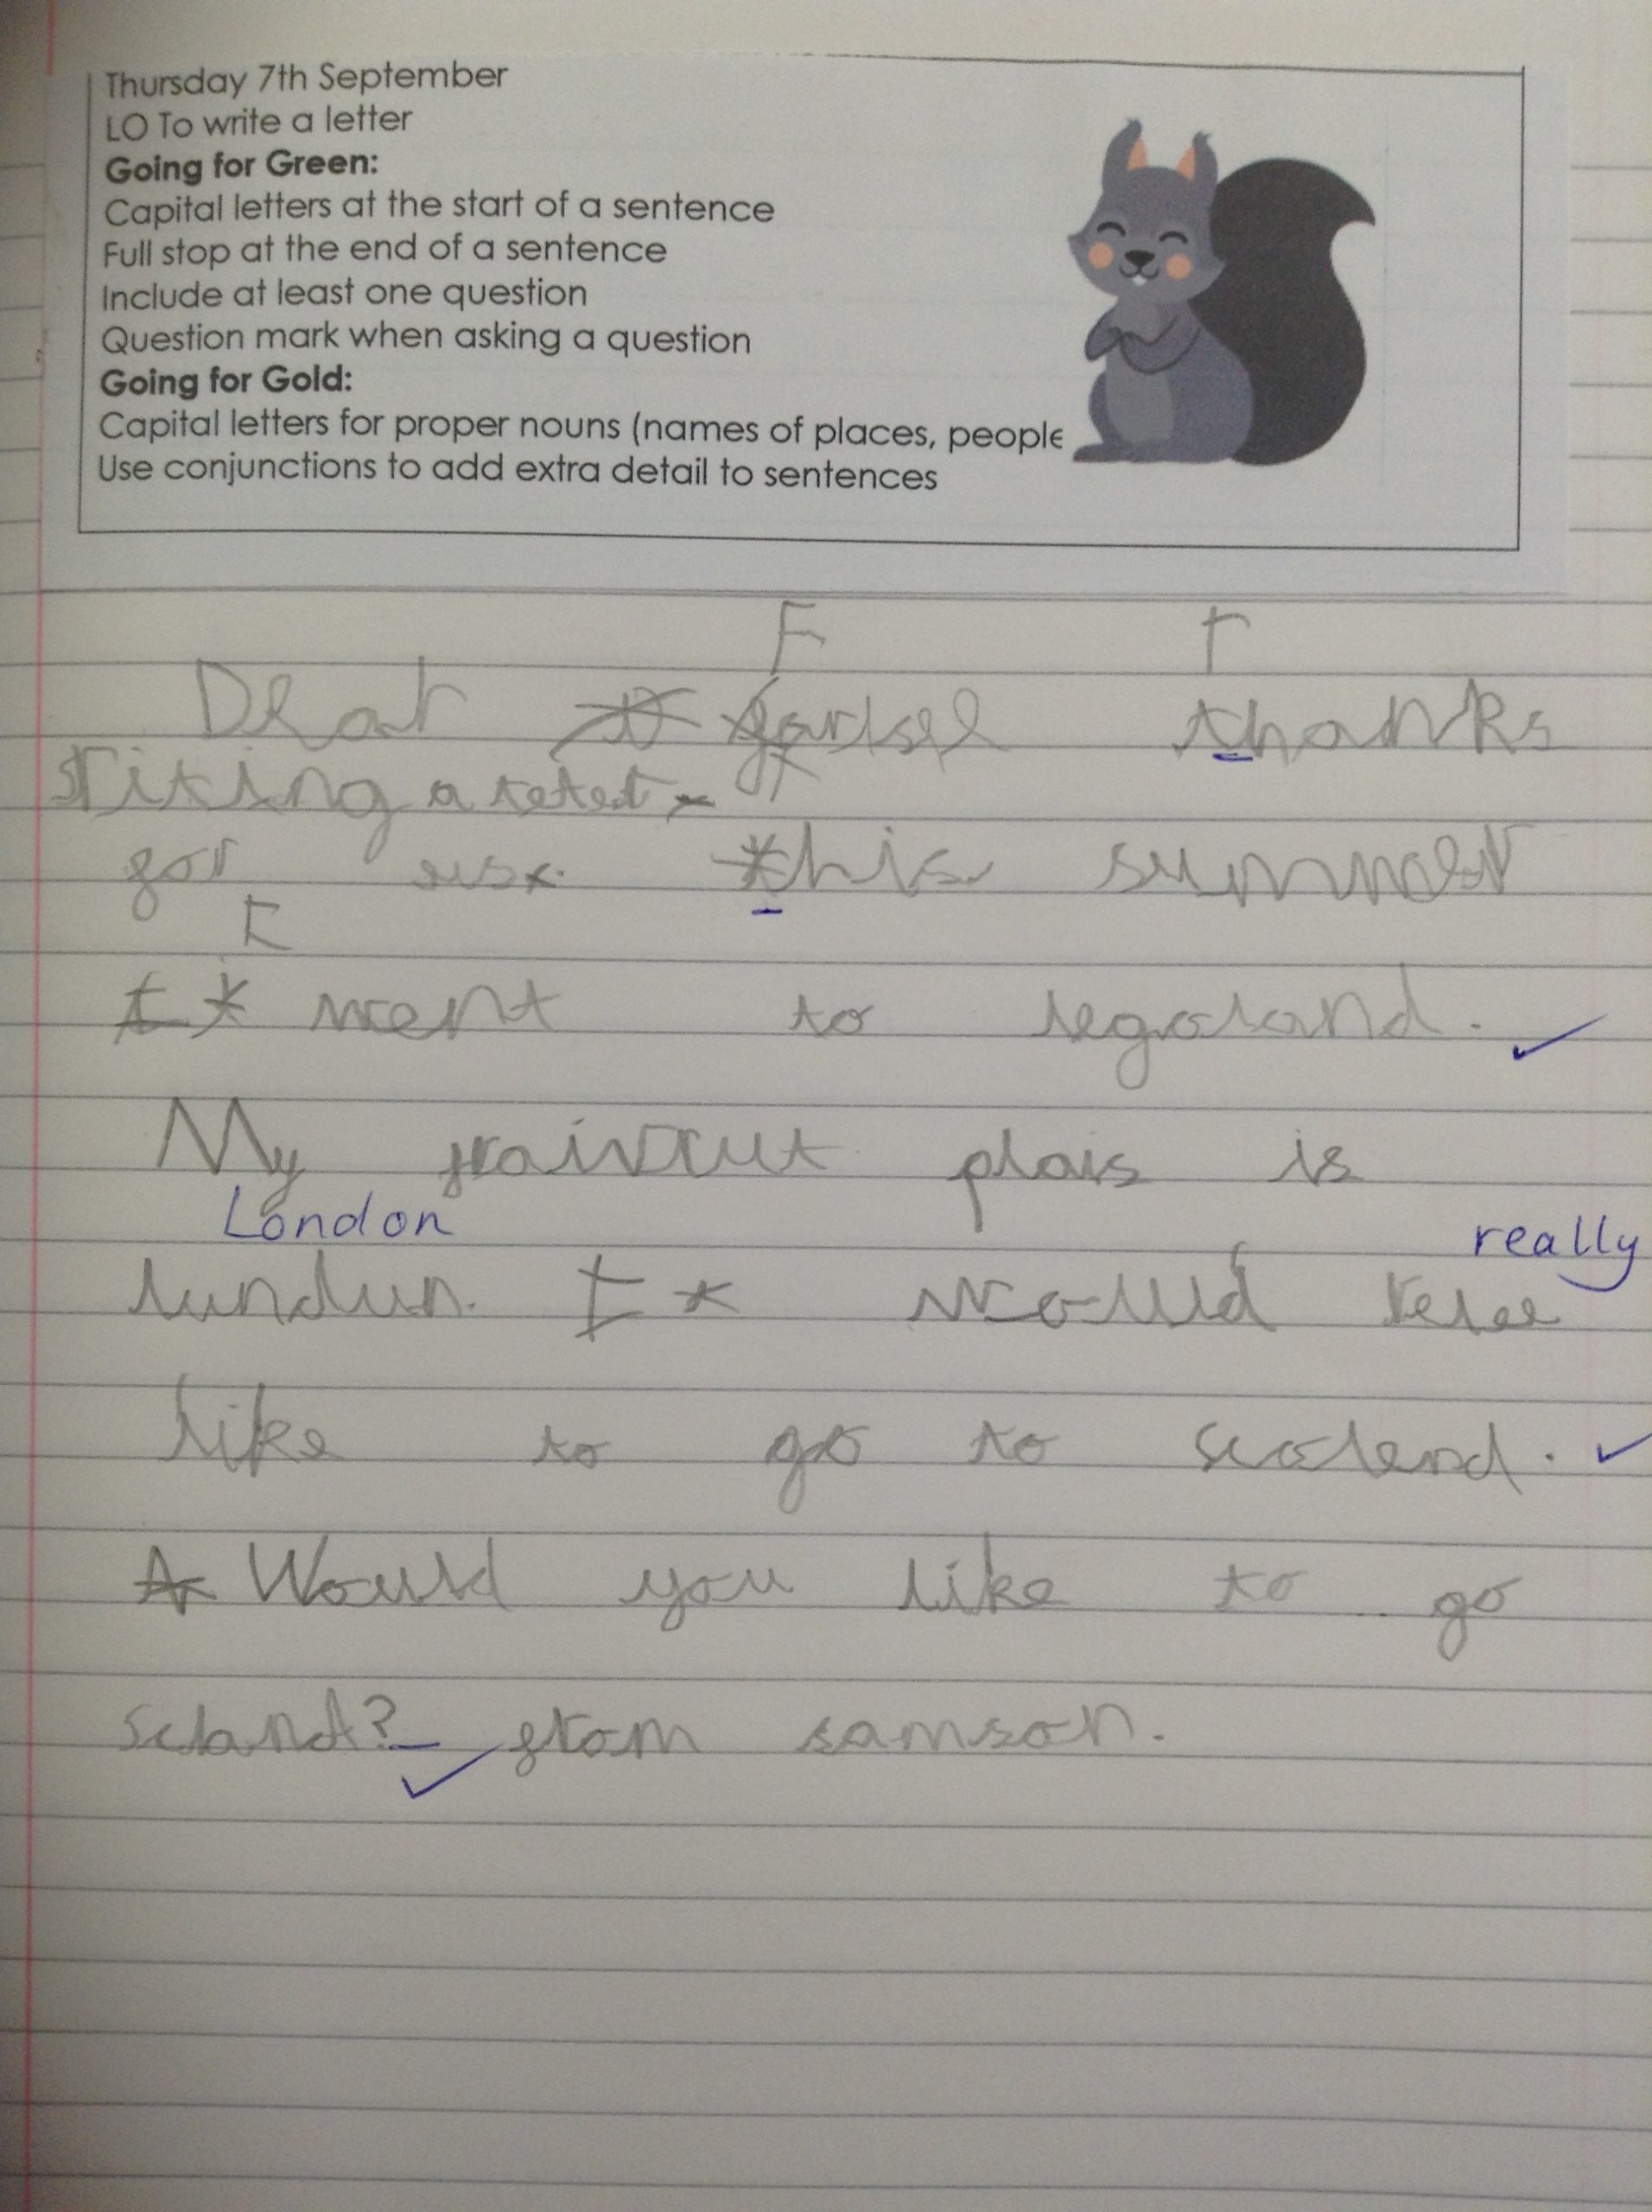 Thursday 7th September
LO To write a letter
Going for Green:
Capital letters at the start of a sentence
Full stop at the end of a sentence
Include at least one question
Question mark when asking a question
Going for Gold:
Capital letters for proper nouns (names of places, people
Use conjunctions to add extra detail to sentences
F T
Dear thanks
riting a
for us. this summer
I
went to legoland.
My plais is
London really
lundun. I would relee
like to go to scolend.
Would you like to go
scland? from samson.